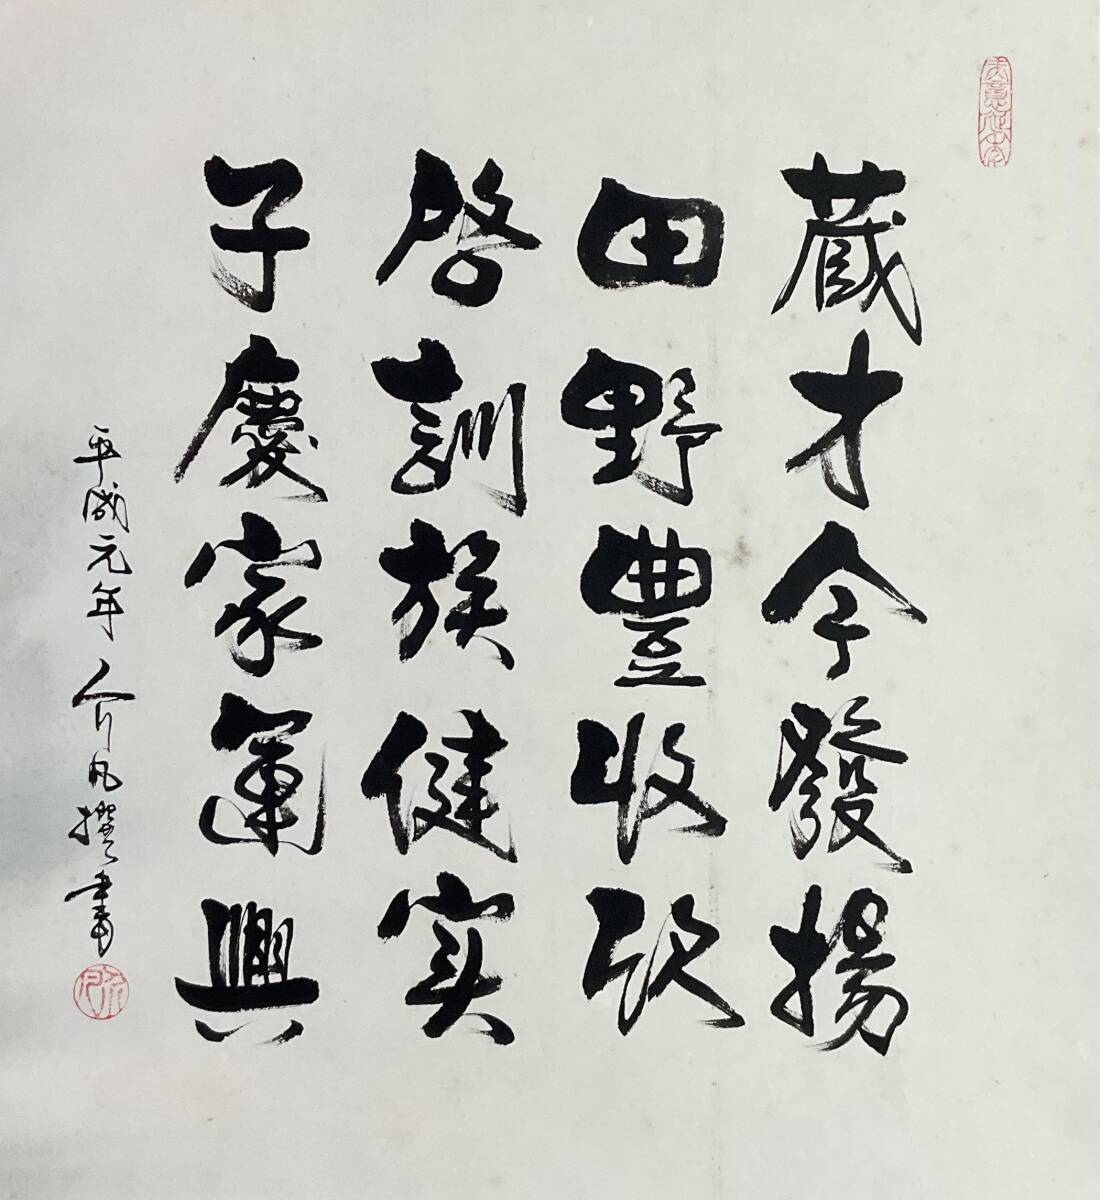 蔵才今發揚
田野豊收欣
啓訓族健実
子慶家運興
平成元年 介凡撰書